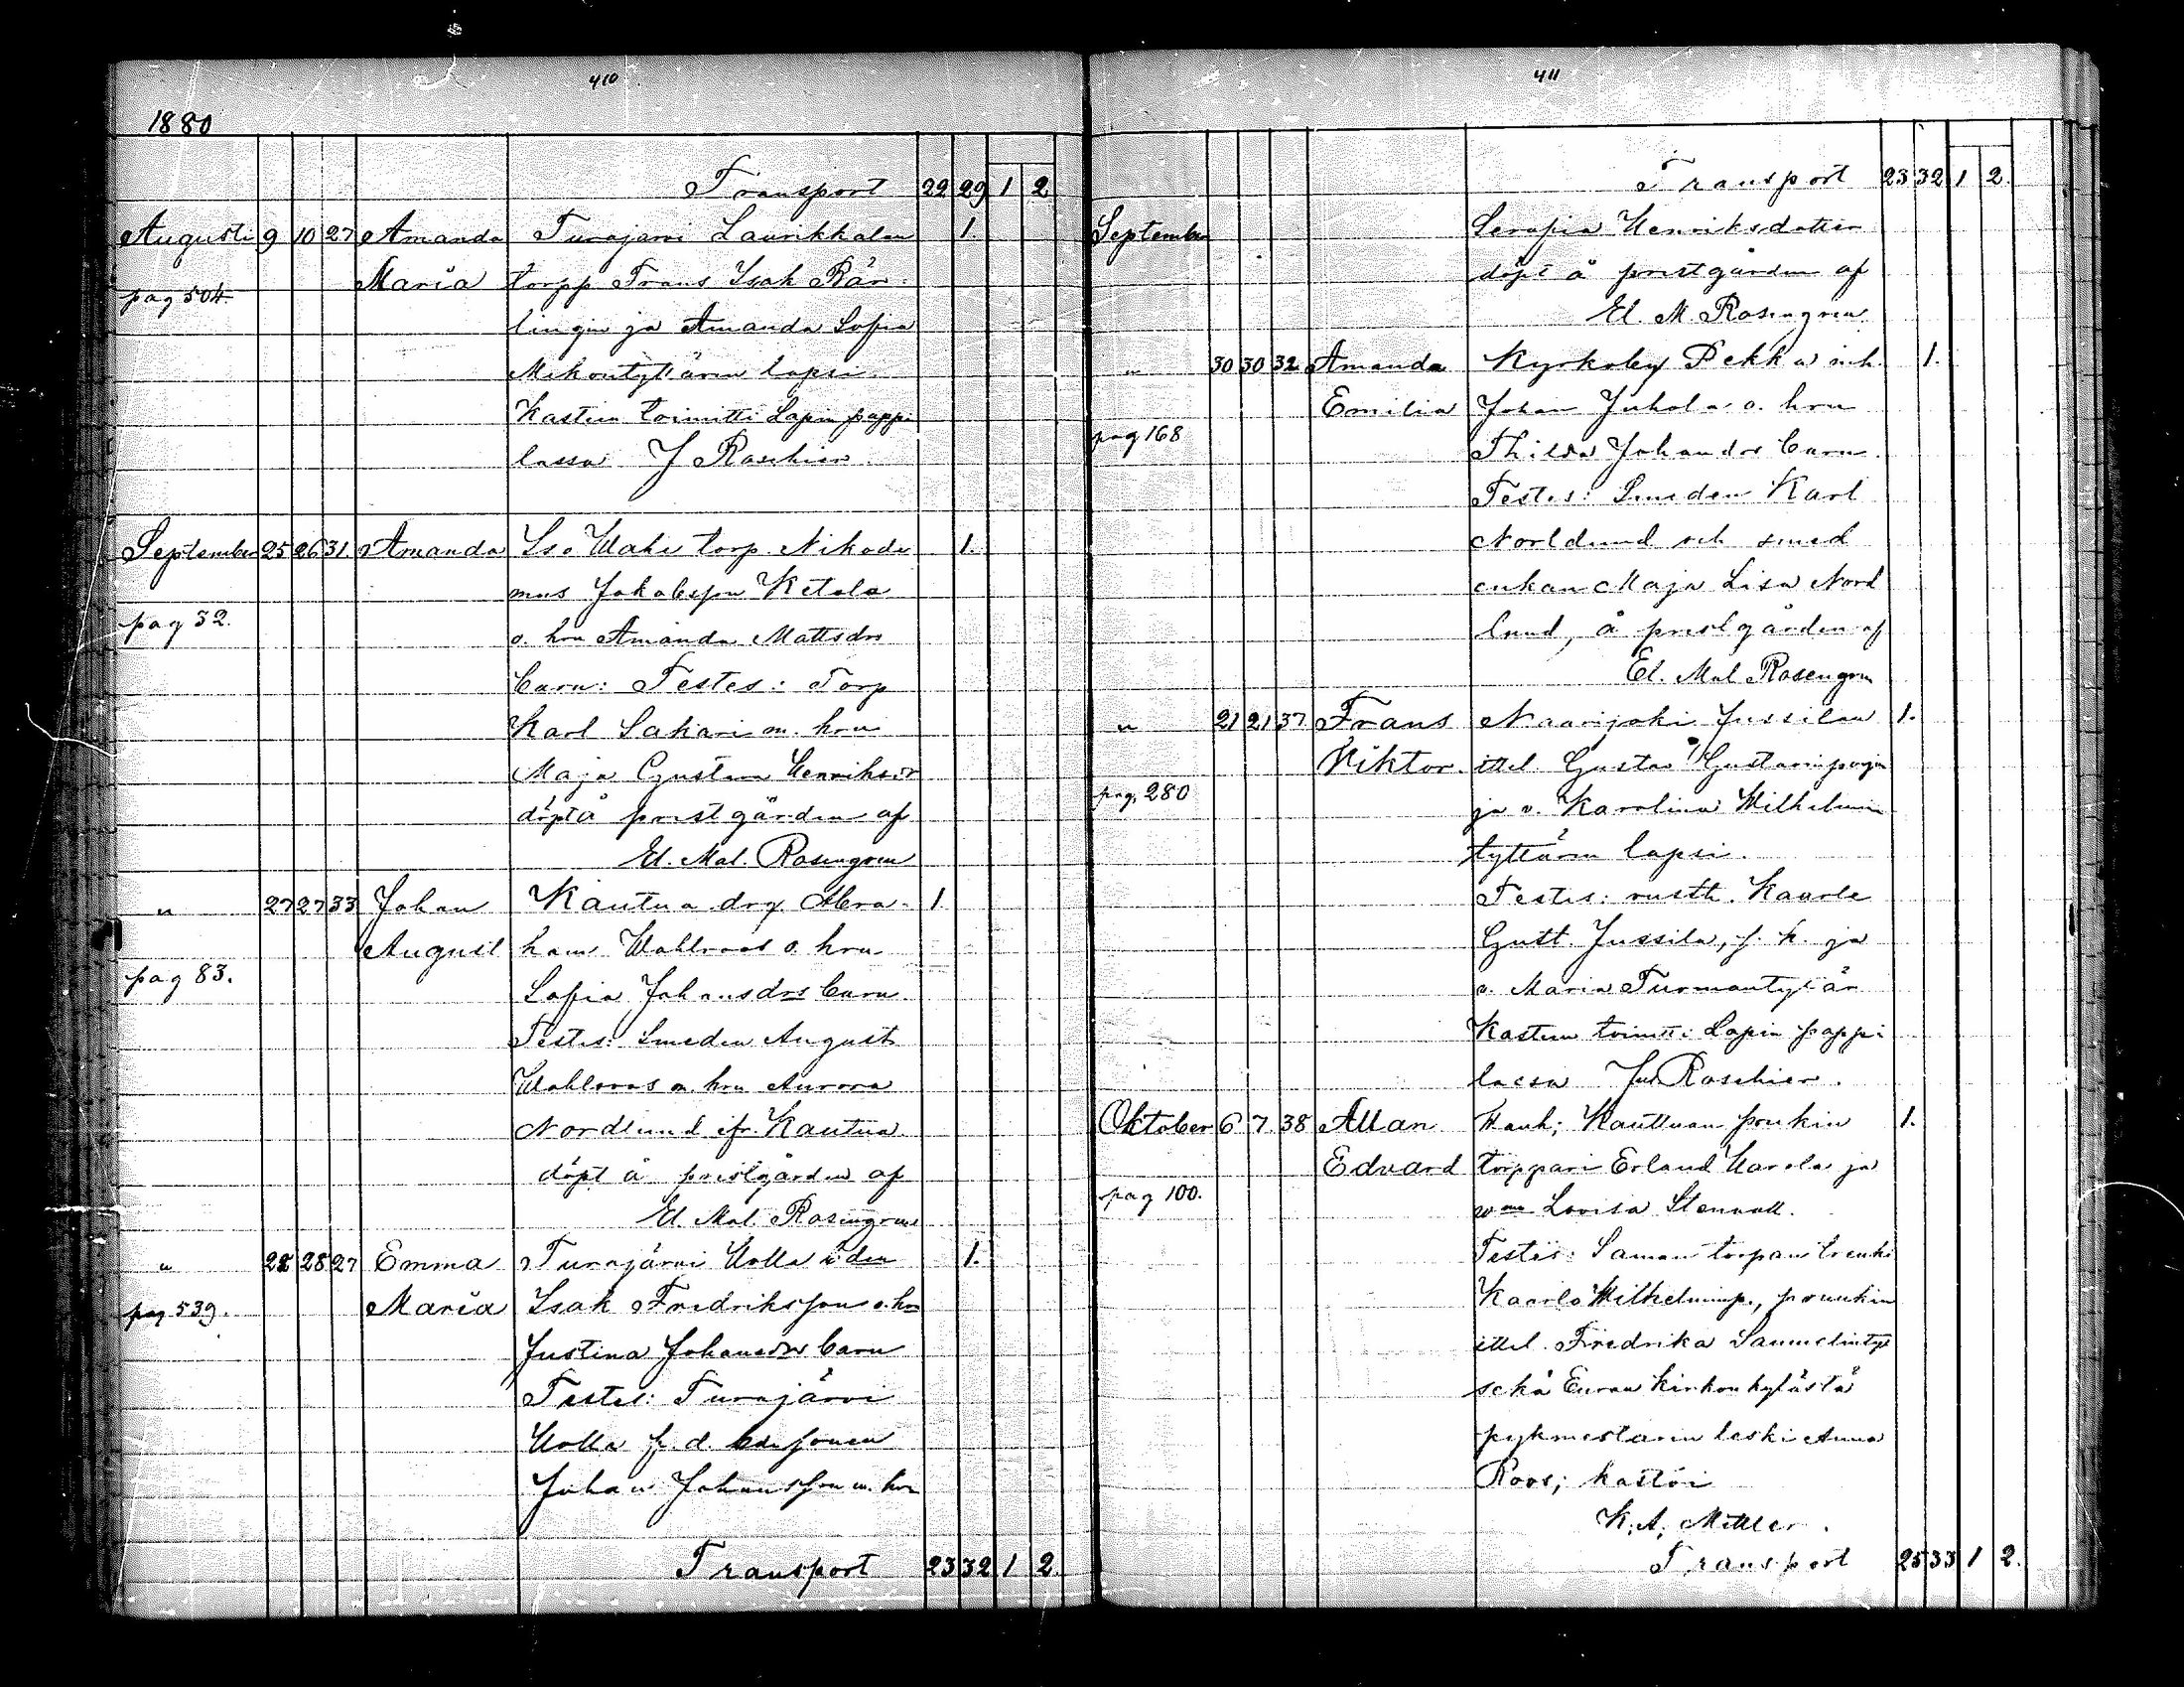 410
1880
Transport 22 29 1 2
Augusti 9 10 27 Amanda Turajärvi Laurikkalan 1.
Maria torpp Frans Isak Bär-
pag 504.
lingin ja Amanda Sofia
Mikontyttären lapsi.
Kasteen toimitti Lapin pappi
lassa J Raschier.
September 25 26 31 Amanda Iso Wahe torp. Nikode 1.
mus Jakobsson Ketola
pag 32.
o. hru Amanda Mattsdrs
barn: Testes: Torp
Karl Sakari m. hru
Maja Gustava Henriksdr
döpt å prestgården af
El. Mal. Rosengren
" 27 27 33 Johan Kautua drg Abra- 1.
August ham Wahlroos o. hru
pag 83.
Sofia Johansdrs barn.
Testes: Smeden August
Wahlroos m. hru Aurora
Nordlund ifr. Kautua.
döpt å prestgården af
El. Mal. Rosengren
" 28 28 27 Emma Turajärvi Uolla 1.
Maria Isak Fredriksson o. hru
pag 539.
Justina Johansdrs barn
Testes: Turajärvi
Uolla f. d.
Johan Johansson m. hru
Transport 23 32 1 2
411
Transport 23 32 1 2.
September Serafia Henriksdotter
döpt å prestgården af
El. M Rosengren.
" 30 30 32 Amanda Kyrkoby Pekka inh. 1.
Emilia Johan Juhola o. hru
pag 168
Thilda Johansdrs barn.
Testes: Smeden Karl
Norldund och smed
enkan Maja Lisa Nord
lund, å prestgården af
El. Mal Rosengren
" 21 21 37 Frans Naarijoki Jussilan 1.
Viktor. ittel. Gustav Gustavinpojan
pag. 280
ja v. Karolina Wilhelmin
tyttären lapsi.
Testes: rustth. Kaarle
Gust. Jussila, f. k. ja
v. Maria Turmantytär
Kasteen toimitti Lapin pappi
lassa Juh Raschier.
Oktober 6 7 38 Allan Hank; Kauttuan prukin 1.
Edvard torppari Erland Harola ja
pag 100.
Lovisa Stenvall.
Testes: Saman torpan trenki
Kaarlo Wilhelminp., pruukin
ittel. Fredrika Samuelintyt
sekä Euran kirkonkylästä
pykmestarin leski Anna
Roos; kastoi
K. A. Mittler.
Transport 25 33 1 2.